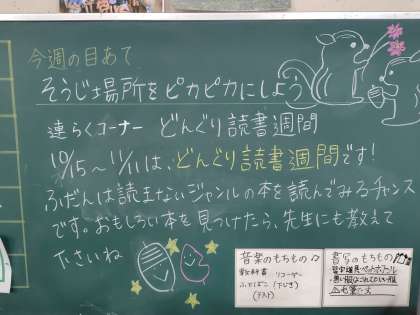 今週の目あて
そうじ場所をピカピカにしよう
連らくコーナー どんぐり読書週間
10/15～11/11は、どんぐり読書週間です!
ふだんは読まないジャンルの本を読んでみるチャンス
です。おもしろい本を見つけたら、先生にも教えて
下さいね
音楽のもちもの♫
教科書 リコーダー
ふでばこ(下じき)
(テスト)
書写のもちもの
習字道具 ペットボトル